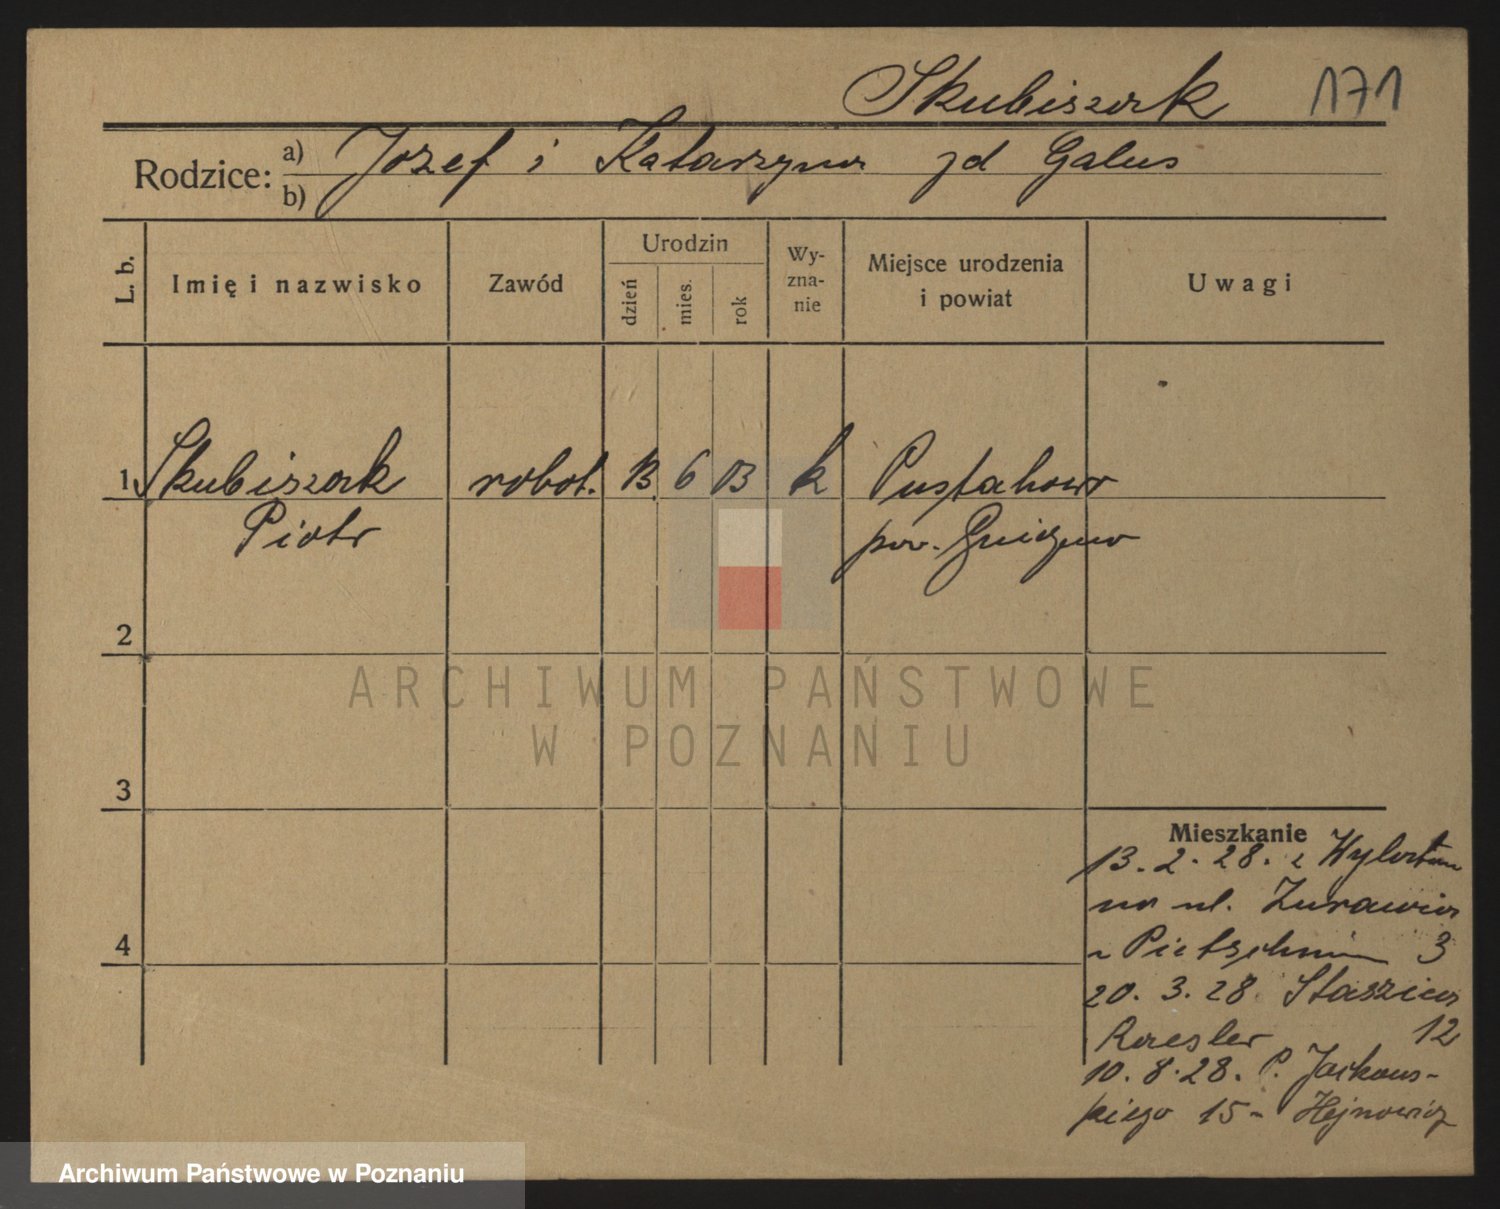 Skubiszak 171
Rodzice: a) Józef i Katarzyna zd Galus
b)
L. b. Imię i nazwisko Zawód Urodzin dzień mies. rok Wy-zna-nie Miejsce urodzenia i powiat Uwagi
1 Skubiszak robot. 13. 6 03 k Pustahowa
Piotr pow. Gniezno
2
ARCHIWUM PAŃSTWOWE
W POZNANIU
3
Mieszkanie
13. 2. 28. z
na ul. Żurawia
3
4
20. 3. 28 Staszica
Raesler 12
10. 8. 28. P. Jackows-
kiego 15 - Hejnowicz
Archiwum Państwowe w Poznaniu